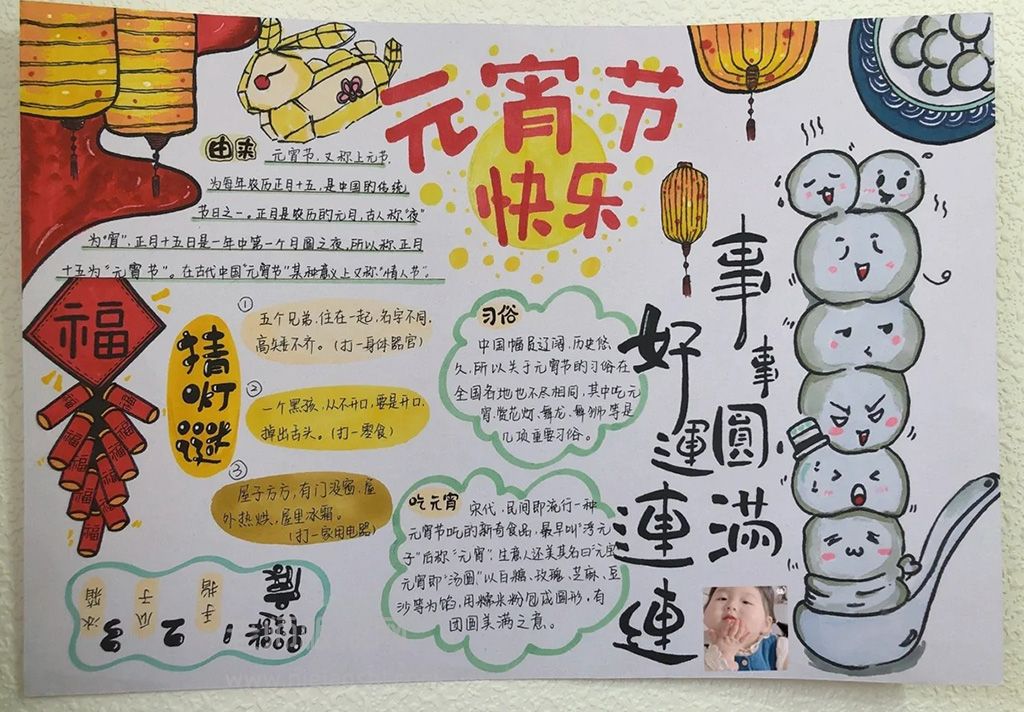 元宵节
快乐
由来
元宵节,又称上元节,
为每年农历正月十五,是中国的传统
节日之一。正月是农历的元月,古人称"夜"
为"宵",正月十五日是一年中第一个月圆之夜,所以称正月
十五为"元宵节"。在古代中国"元宵节"某种意义上又称"情人节"。
福
猜灯谜
①
五个兄弟,住在一起,名字不同,
高矮不齐。(打一身体器官)
②
一个黑孩,从不开口,要是开口,
掉出舌头。(打一零食)
③
屋子方方,有门没窗,屋
外热烘,屋里冰霜。
(打一家用电器)
谜底
1 手指
2 瓜子
3 冰箱
习俗
中国幅员辽阔,历史悠
久,所以关于元宵节的习俗在
全国各地也不尽相同,其中吃元
宵、赏花灯、舞龙、舞狮等是
几项重要习俗。
吃元宵
宋代,民间即流行一种
元宵节吃的新奇食品,最早叫"浮元
子"后称"元宵",生意人还美其名曰"元宝
元宵即"汤圆"以白糖、玫瑰、芝麻、豆
沙等为馅,用糯米粉包成圆形,有
团圆美满之意。
事事圓满
好運連連